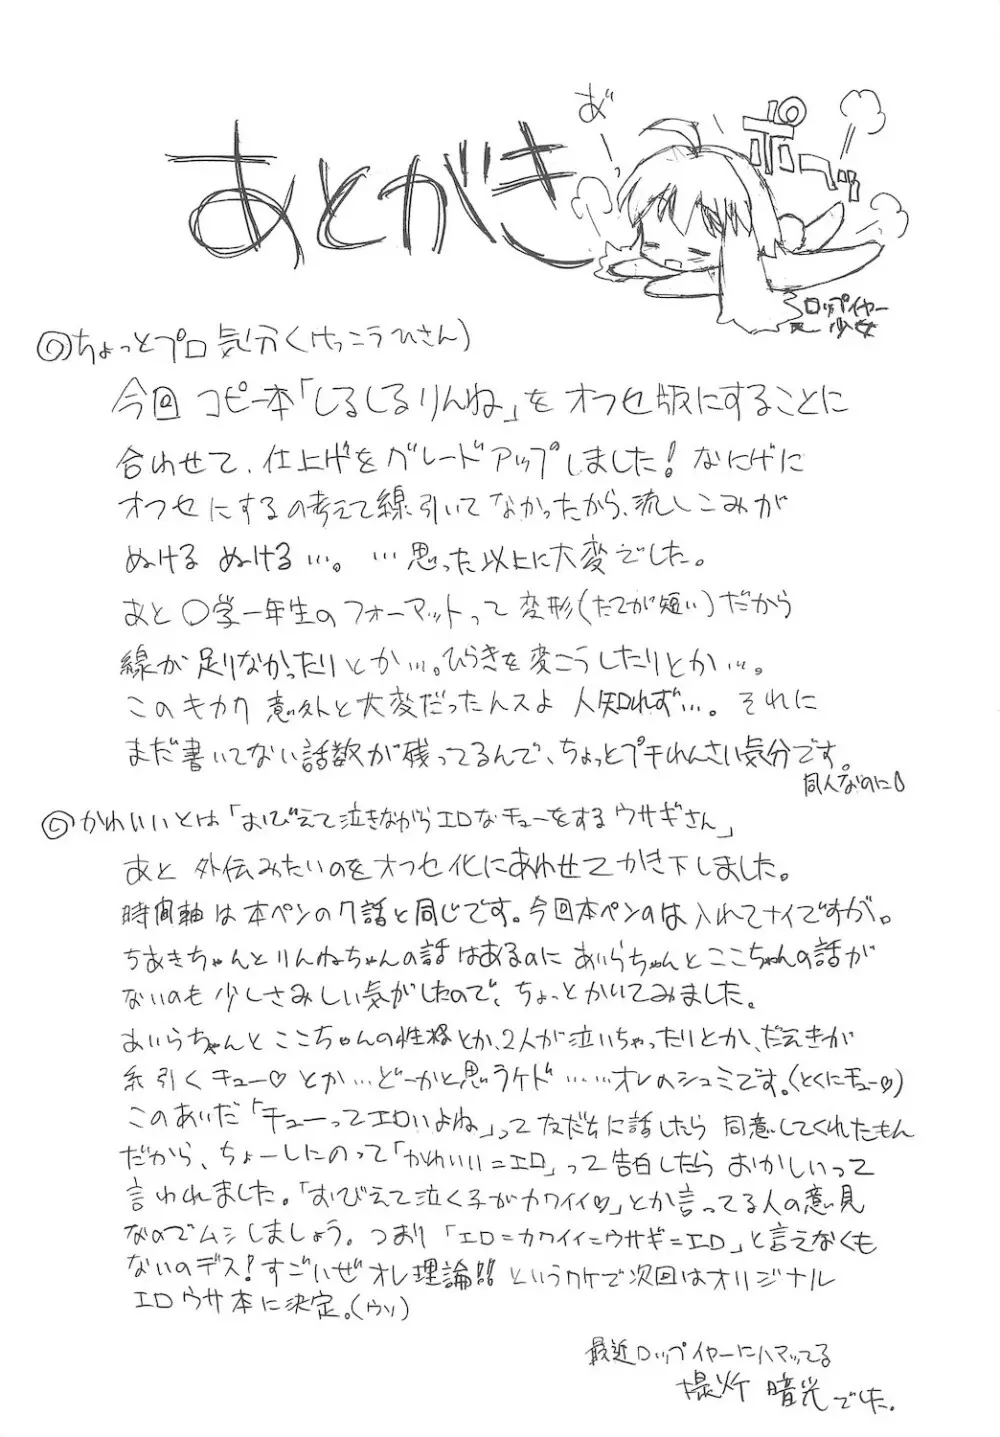 あとがき
あ゛
ポヘッ
ロップイヤー
少女
◎ちょっとプロ気分く(けっこうひさん)
今回 コピー本「しるしるりんね」を オフセ版にすることに
合わせて、仕上げをグレードアップしました! なにげに
オフセにするの考えて線引いてなかったから、流しこみが
ぬける ぬける…。…思った以上に大変でした。
あと 〇学一年生のフォーマットって 変形(たてが短い)だから
線が足りなかったりとか…。ひらきを変こうしたりとか…。
このキカク 意外と大変だったんスよ 人知れず…。それに
まだ書いてない話数が残ってるんで、ちょっとプチれんさい気分です。
同人なのに
◎かわいいとは「おびえて泣きながらエロなチューをするウサギさん」
あと 外伝みたいのをオフセ化にあわせてかき下しました。
時間軸は本ペンの7話と同じです。今回本ペンのは入れてナイですが。
ちあきちゃんとりんねちゃんの話はあるのに あいらちゃんとここちゃんの話が
ないのも少しさみしい気がしたので、ちょっとかいてみました。
あいらちゃんとここちゃんの性格とか、2人が泣いちゃったりとか、だえきが
糸引くチュー♡とか…どーかと思うケド……オレのシュミです。(とくにチュー♡)
このあいだ「チューってエロいよね」って友だちに話したら 同意してくれたもん
だから、ちょーしにのって「かわいい=エロ」って告白したら おかしいって
言われました。「おびえて泣く子がカワイイ♡」とか言ってる人の意見
なのでムシしましょう。つまり「エロ=カワイイ=ウサギ=エロ」と言えなくも
ないのデス! すごいぜオレ理論!! というワケで次回はオリジナル
エロウサ本に決定。(ウソ)
最近ロップイヤーにハマってる
暗光でした。